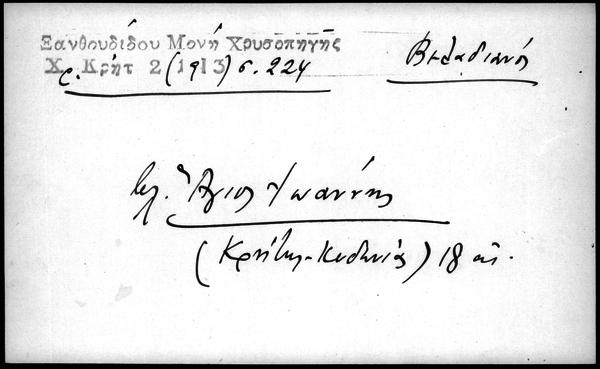 Ξανθουδίδου Μονὴ Χρυσοπηγῆς
Χρ. Κρήτ 2 (1913) σ. 224
Βελαδιανός
βλ. Ἅγιος Ἰωάννης
(Κρήτης-Κυδωνίας) 18 αἰ.